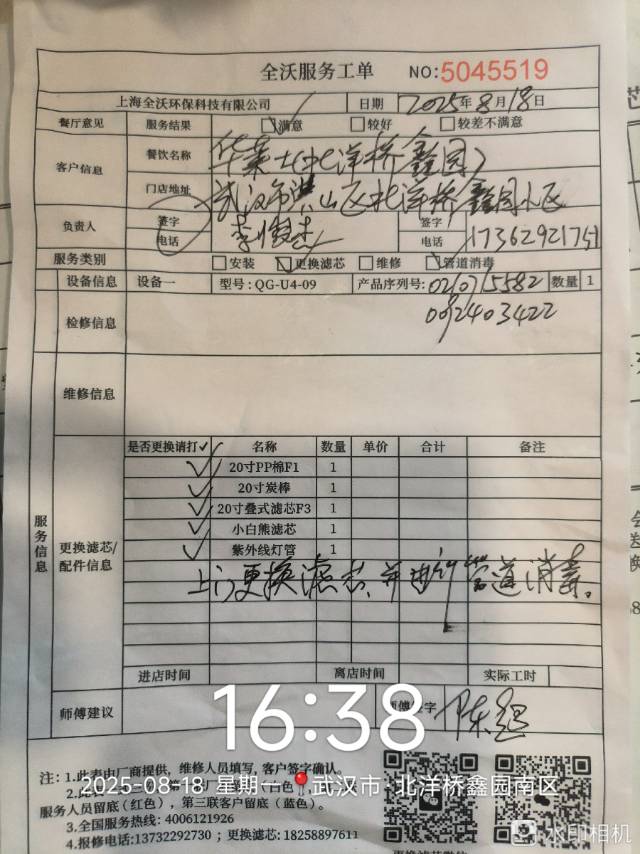 全沃服务工单 NO:5045519
上海全沃环保科技有限公司 日期 2025年8月18日
餐厅意见 服务结果 ☑满意 □较好 □较差不满意
客户信息 餐饮名称 华莱士(北洋桥鑫园)
门店地址 武汉市洪山区北洋桥鑫园小区
负责人 签字 签字
电话 电话 17362921751
服务类别 □安装 ☑更换滤芯 □维修 ☑管道消毒
设备信息 设备一 型号:QG-U4-09 产品序列号:020715582 数量 1
092403422
检修信息
维修信息
服务信息
更换滤芯/配件信息
是否更换请打✓ 名称 数量 单价 合计 备注
✓ 20寸PP棉F1 1
✓ 20寸炭棒 1
✓ 20寸叠式滤芯F3 1
✓ 小白熊滤芯 1
✓ 紫外线灯管 1
上门更换滤芯,并进行管道消毒。
进店时间 离店时间 实际工时
师傅建议 师傅签字
16:38
注:1.此表由厂商提供,维修人员填写,客户签字确认。
2025-08-18 星期一 武汉市·北洋桥鑫园南区
服务人员留底(红色),第三联客户留底(蓝色)。
3.全国服务热线:4006121926
4.报修电话:13732292730;更换滤芯:18258897611
水印相机